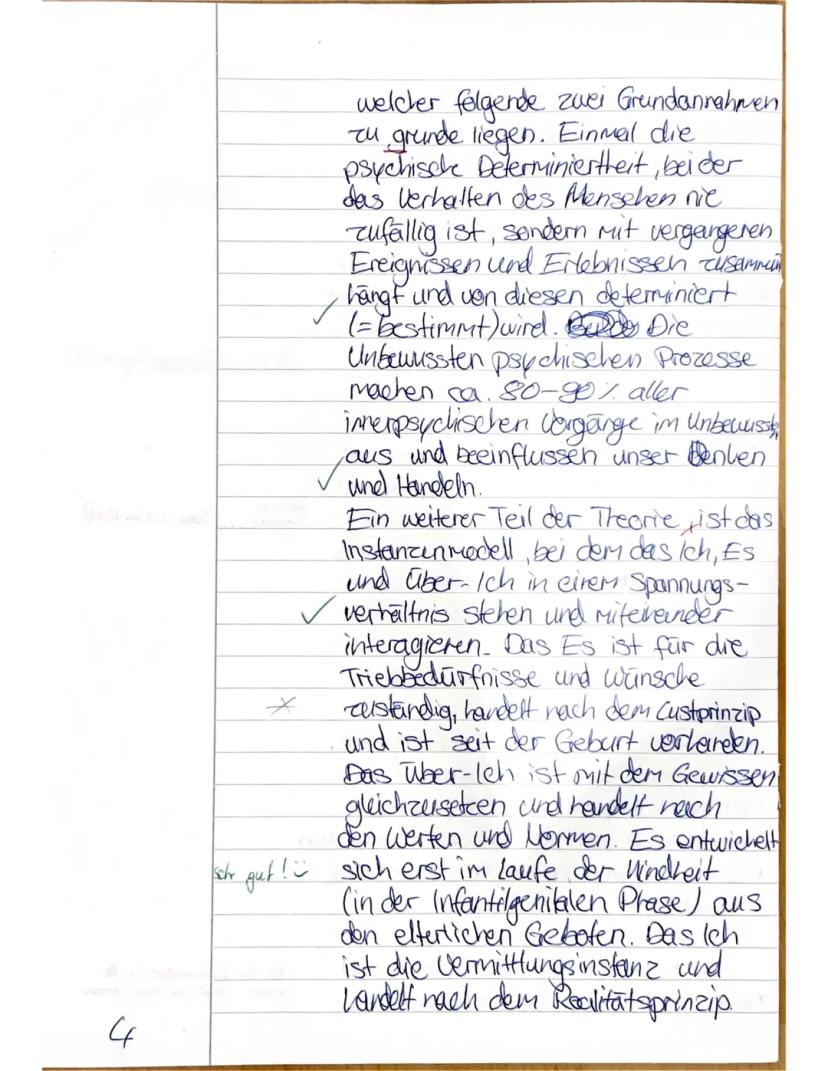 welcher folgende zwei Grundannahmen
zu grunde liegen. Einmal die
psychische Determiniertheit, bei der
das Verhalten des Menschen nie
zufällig ist, sondern mit vergangenen
Ereignissen und Erlebnissen zusammen
hängt und von diesen determiniert
(=bestimmt) wird. Die
Unbewussten psychischen Prozesse
machen ca. 80-90% aller
innerpsychischen Vorgänge im Unbewusst
aus und beeinflussen unser Denken
und Handeln.
Ein weiterer Teil der Theorie, ist das
Instanzenmodell, bei dem das Ich, Es
und Über-Ich in einem Spannungs-
verhältnis stehen und miteinander
interagieren. Das Es ist für die
Triebbedürfnisse und Wünsche
zuständig, handelt nach dem Lustprinzip
und ist seit der Geburt vorhanden.
Das Über-Ich ist mit dem Gewissen
gleichzusetzen und handelt nach
den Werten und Normen. Es entwickelt
sehr gut! :) sich erst im Laufe der Kindheit
(in der Infantilgenitalen Phase) aus
den elterlichen Geboten. Das Ich
ist die Vermittlungsinstanz und
handelt nach dem Realitätsprinzip.
4